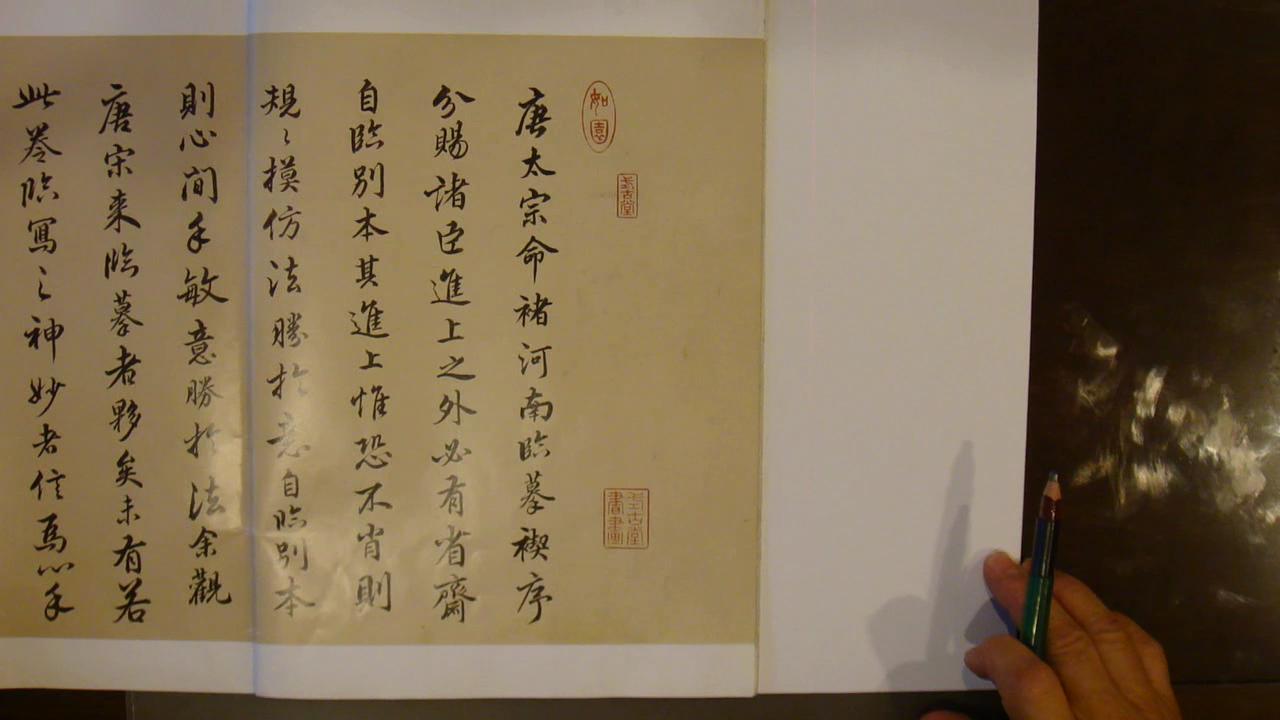 如園
考古堂
考古堂書畫
唐太宗命褚河南臨摹禊序
分賜諸臣進上之外必有省齋
自臨別本其進上惟恐不肖則
規〻摸仿法勝於意自臨別本
則心閒手敏意勝於法余觀
唐宋来臨摹者夥矣未有若
此卷臨寫之神妙者信焉心手